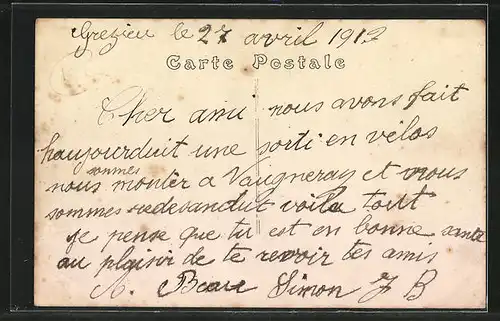 Grezieu le 27 avril 1913
Carte Postale
Cher ami nous avons fait
haujourduit une sorti en vélos
sommes
nous monter a Vaugneray et nous
sommes redesandut voila tout
je pense que tu est en bonne santé
au plaisir de te revoir tes amis
A. Simon J B